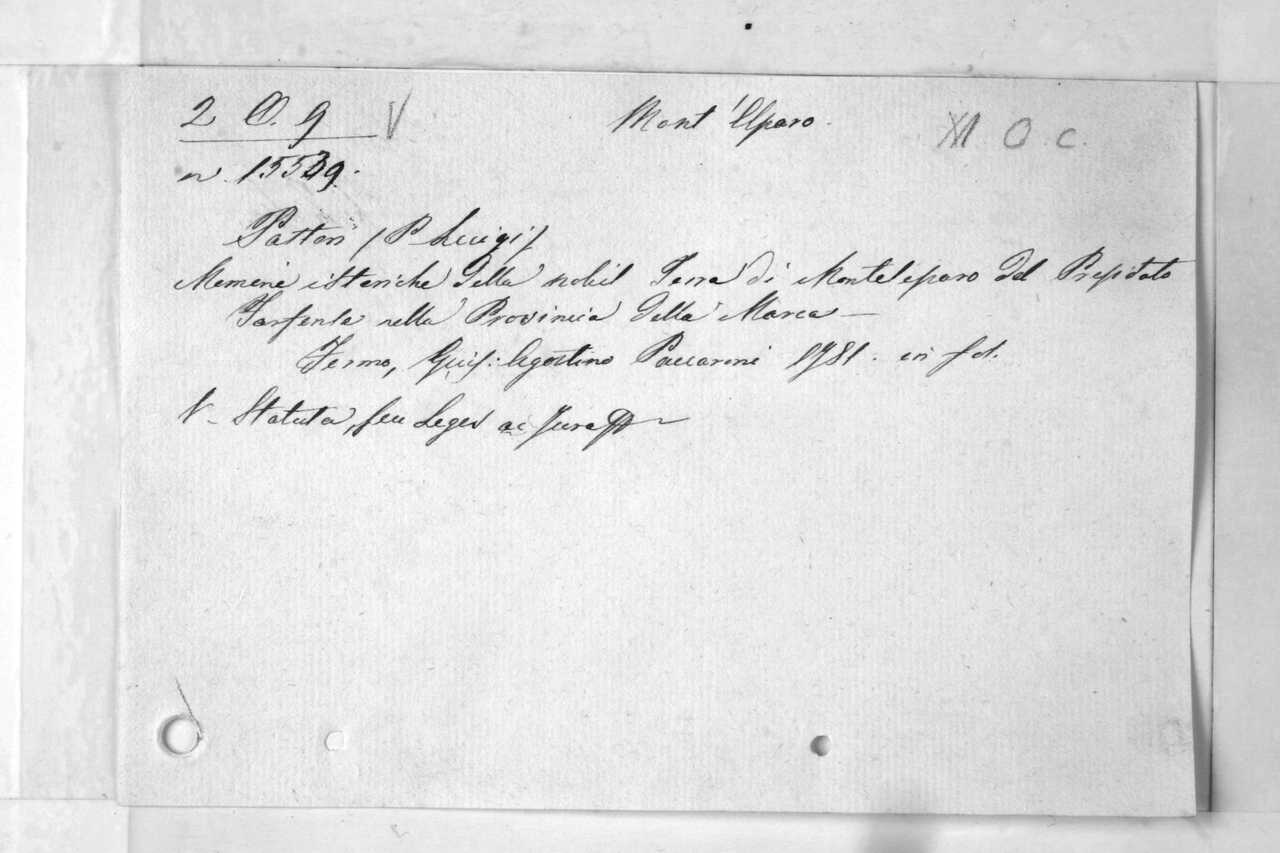 2 O. 9 V
Mont'Elparo.
XII O C.
n. 15539.
Pastori (P Luigi)
Memorie istoriche della nobil Terra di Monteleparo del Presidato
Farfense nella Provincia della Marca —
Fermo, Gius: Agostino Paccaroni 1781. in fol.
V. Statuta, seu Leges ac Jura